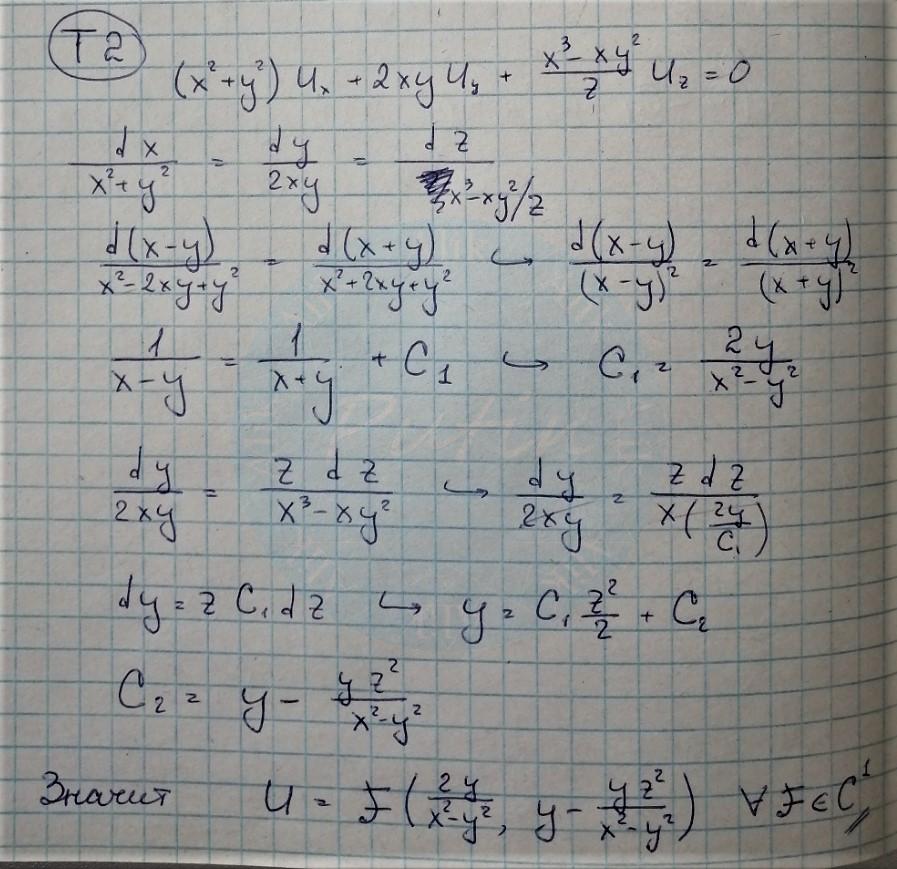 T2
(x²+y²) Uₓ + 2xy U_y + (x³ - xy²)/z U_z = 0
dx/(x²+y²) = dy/(2xy) = dz/(x³-xy²/z)
d(x-y)/(x²-2xy+y²) = d(x+y)/(x²+2xy+y²) ↪ d(x-y)/(x-y)² = d(x+y)/(x+y)²
1/(x-y) = 1/(x+y) + C₁ ↪ C₁ = 2y/(x²-y²)
dy/(2xy) = z dz/(x³-xy²) ↪ dy/(2xy) = z dz/(x(2y/C₁))
dy = z C₁ dz ↪ y = C₁ z²/2 + C₂
C₂ = y - yz²/(x²-y²)
Значит U = F(2y/(x²-y²), y - yz²/(x²-y²)) ∀ F ∈ C¹